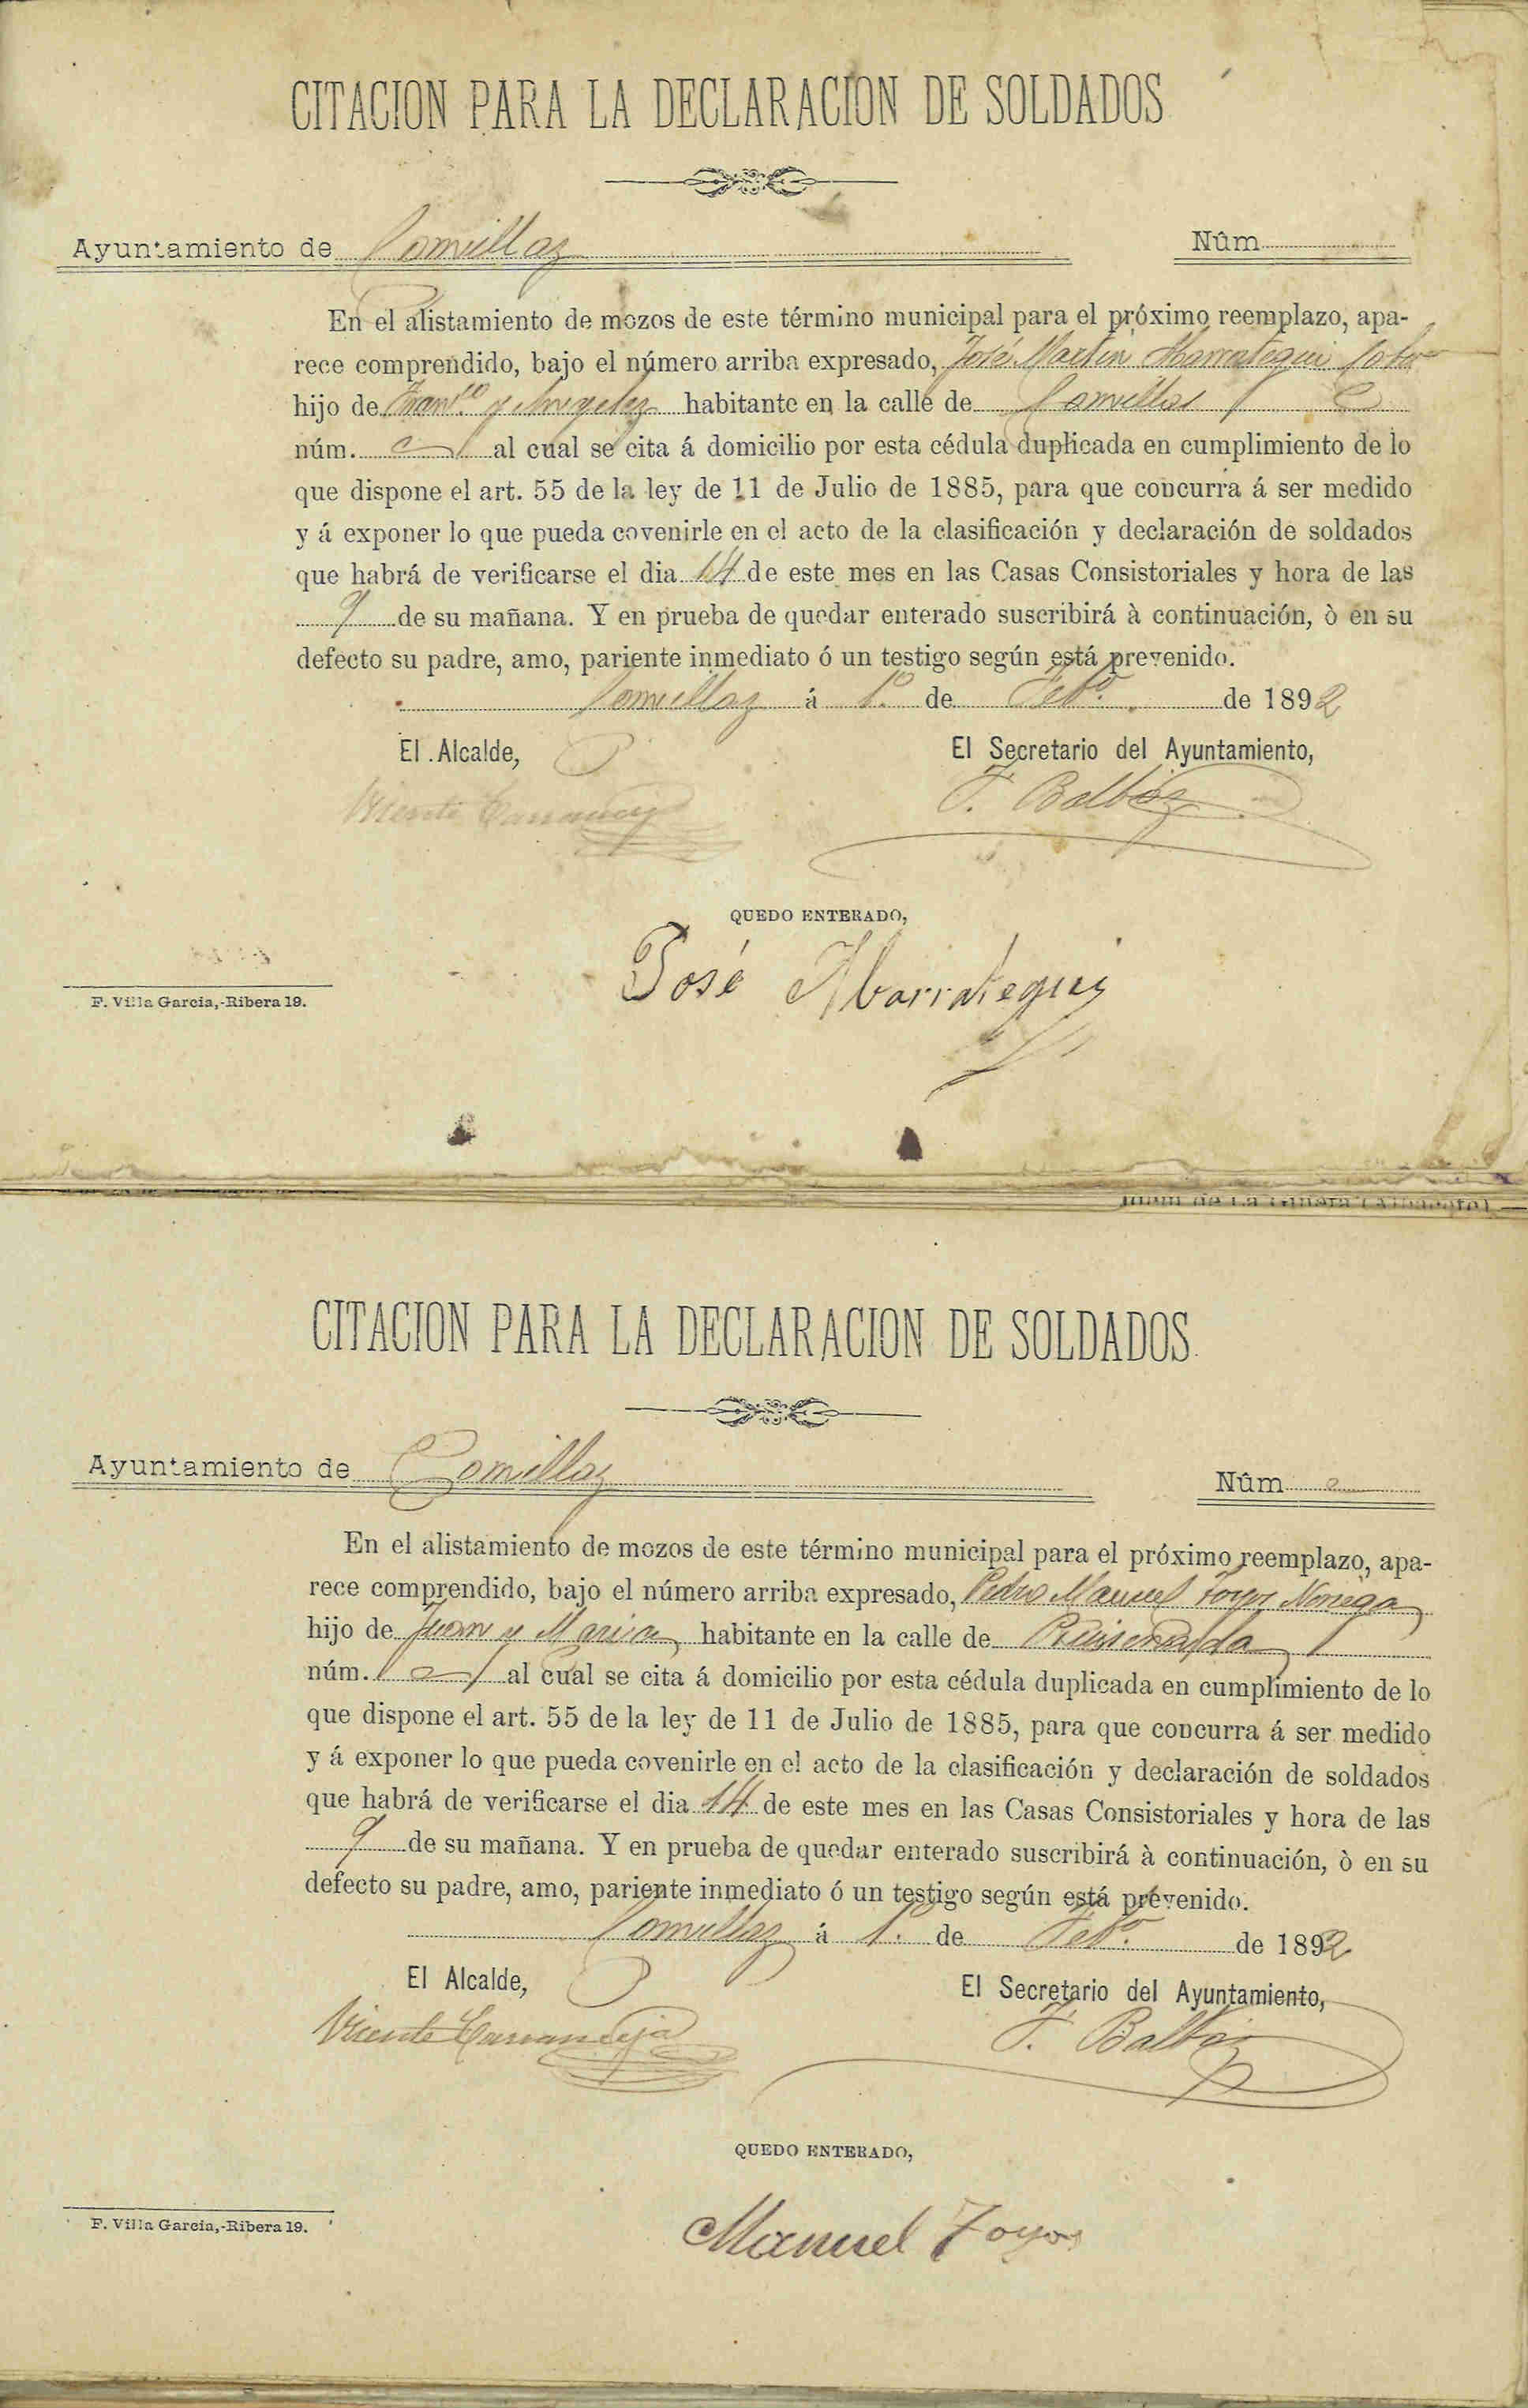 CITACION PARA LA DECLARACION DE SOLDADOS
Ayuntamiento de Comillas Núm
En el alistamiento de mozos de este término municipal para el próximo reemplazo, apa-
rece comprendido, bajo el número arriba expresado, José Martin Abarrategui
hijo de Franco y Angeles habitante en la calle de Comillas
núm. al cual se cita á domicilio por esta cédula duplicada en cumplimiento de lo
que dispone el art. 55 de la ley de 11 de Julio de 1885, para que concurra á ser medido
y á exponer lo que pueda covenirle en el acto de la clasificación y declaración de soldados
que habrá de verificarse el dia 14 de este mes en las Casas Consistoriales y hora de las
9 de su mañana. Y en prueba de quedar enterado suscribirá à continuación, ò en su
defecto su padre, amo, pariente inmediato ó un testigo según está prevenido.
Comillas á 1.º de Feb.º de 1892
El Alcalde, El Secretario del Ayuntamiento,
Vicente F. Balbás
QUEDO ENTERADO,
José Abarrategui
F. Villa Garcia,-Ribera 19.
CITACION PARA LA DECLARACION DE SOLDADOS.
Ayuntamiento de Comillas Núm
En el alistamiento de mozos de este término municipal para el próximo reemplazo, apa-
rece comprendido, bajo el número arriba expresado, Pedro Manuel Toyos Noriega
hijo de Juan y Maria habitante en la calle de Ruiseñada
núm. al cual se cita á domicilio por esta cédula duplicada en cumplimiento de lo
que dispone el art. 55 de la ley de 11 de Julio de 1885, para que concurra á ser medido
y á exponer lo que pueda covenirle en el acto de la clasificación y declaración de soldados
que habrá de verificarse el dia 14 de este mes en las Casas Consistoriales y hora de las
9 de su mañana. Y en prueba de quedar enterado suscribirá à continuación, ò en su
defecto su padre, amo, pariente inmediato ó un testigo según está prevenido.
Comillas á 1.º de Feb.º de 1892
El Alcalde, El Secretario del Ayuntamiento,
Vicente F. Balbás
QUEDO ENTERADO,
Manuel Toyos
F. Villa Garcia,-Ribera 19.